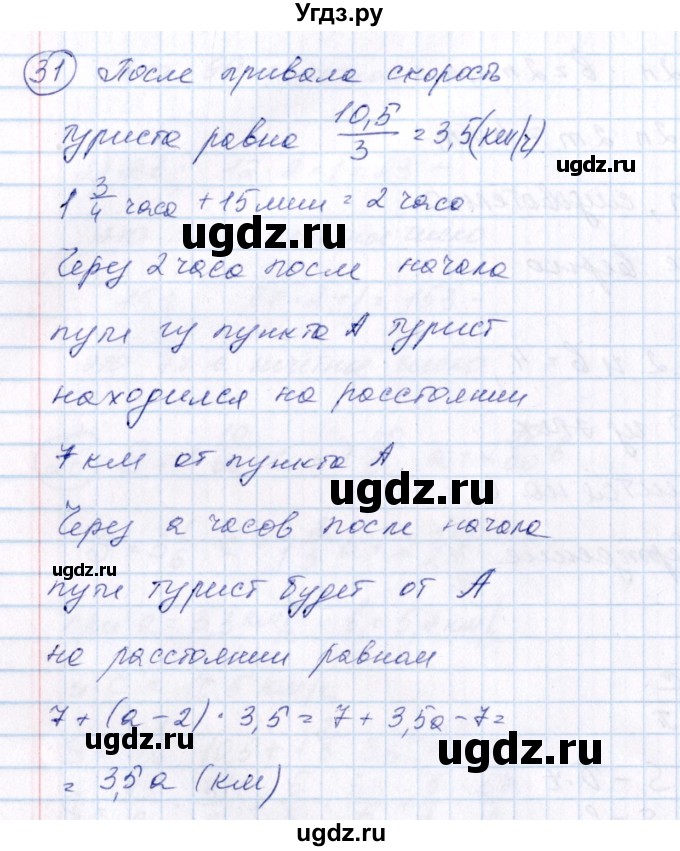 Угдз.ру
31 После привала скорость
туриста равна 10,5/3 = 3,5(км/ч)
1 3/4 часа + 15 мин = 2 часа
ugdz.ru
Через 2 часа после начала
пути из пункта А турист
находился на расстоянии
7 км от пункта А
ugdz.ru
Через a часов после начала
ugdz.ru
пути турист будет от А
на расстоянии равном
7 + (a - 2) · 3,5 = 7 + 3,5a - 7 =
ugdz.ru
ugdz.ru
= 3,5a (км)
ugdz.ru